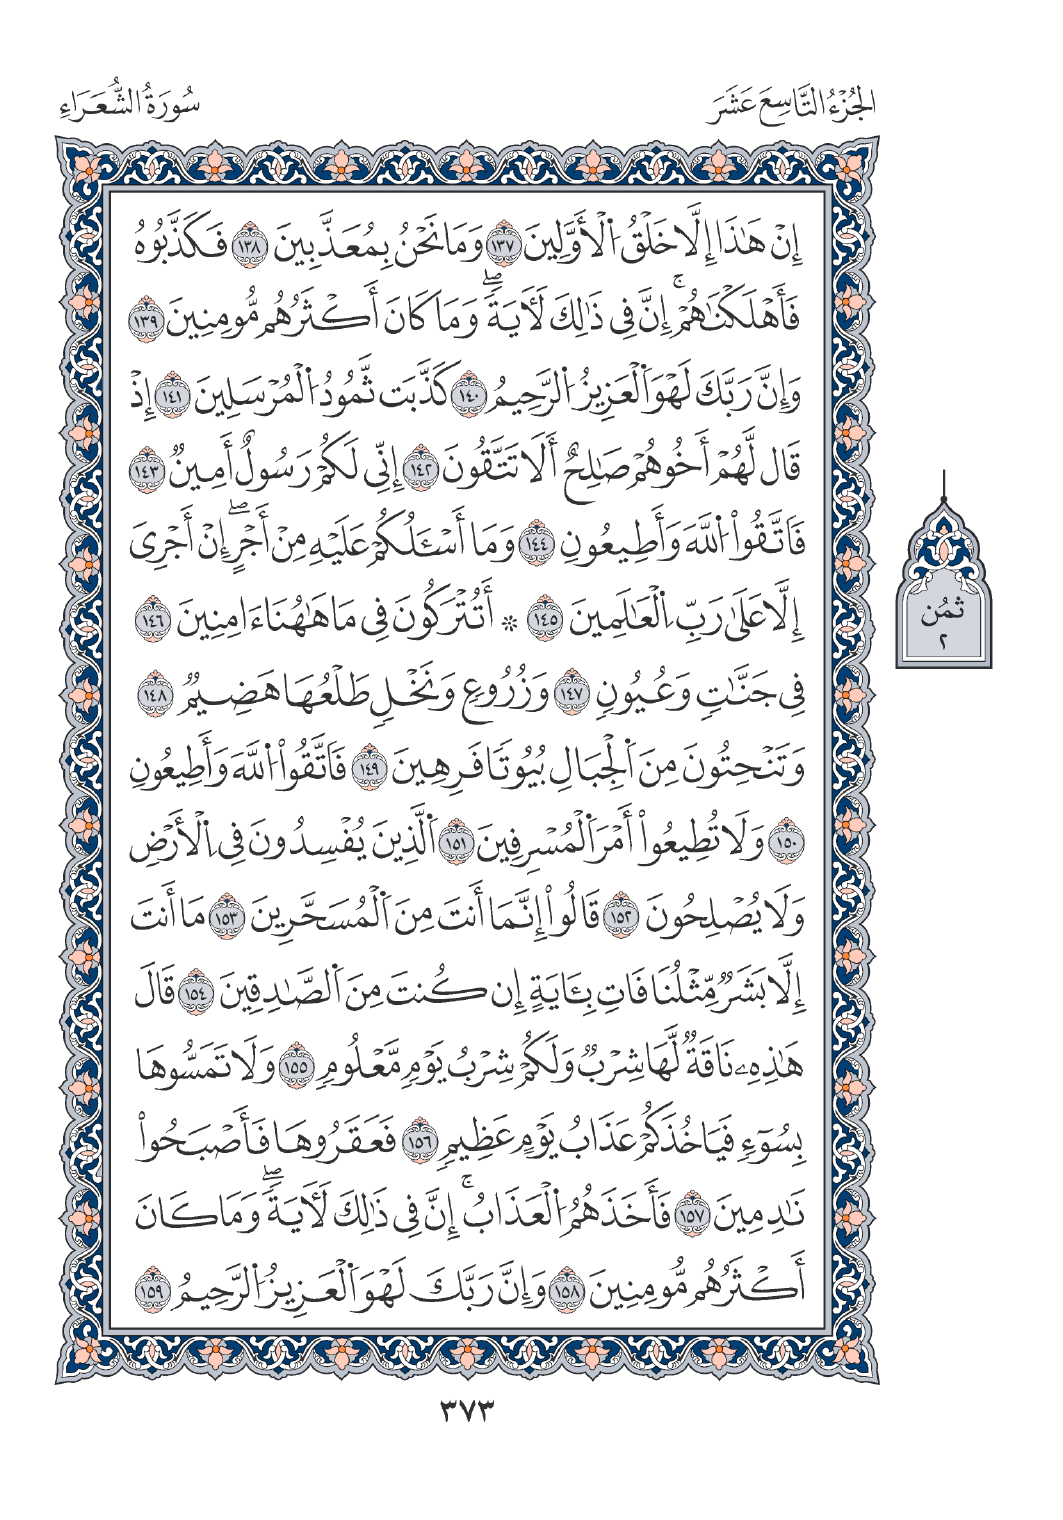 الجُزْءُ التَّاسِعَ عَشَرَ
سُورَةُ الشُّعَرَاءِ
إِنْ هَٰذَا إِلَّا خَلْقُ اُ۬لْأَوَّلِينَ ١٣٧ وَمَا نَحْنُ بِمُعَذَّبِينَ ١٣٨ فَكَذَّبُوهُ
فَأَهْلَكْنَٰهُمْۚ إِنَّ فِي ذَٰلِكَ لَأٓيَةٗۖ وَمَا كَانَ أَكْثَرُهُم مُّومِنِينَ ١٣٩
وَإِنَّ رَبَّكَ لَهْوَ اَ۬لْعَزِيزُ اُ۬لرَّحِيمُ ١٤٠ كَذَّبَت ثَّمُودُ اُ۬لْمُرْسَلِينَ ١٤١ إِذْ
قَال لَّهُمْ أَخُوهُمْ صَٰلِحٌ أَلَا تَتَّقُونَ ١٤٢ إِنِّي لَكُمْ رَسُولٌ أَمِينٞ ١٤٣
فَاتَّقُواْ اُ۬للَّهَ وَأَطِيعُونِ ١٤٤ وَمَا أَسْـَٔلُكُمْ عَلَيْهِ مِنْ أَجْرٍۖ إِنْ أَجْرِيَ
إِلَّا عَلَىٰ رَبِّ اِ۬لْعَٰلَمِينَ ١٤٥ ۞ أَتُتْرَكُونَ فِي مَا هَٰهُنَا ءَامِنِينَ ١٤٦
فِي جَنَّٰتٖ وَعُيُونٖ ١٤٧ وَزُرُوعٖ وَنَخْلٖ طَلْعُهَا هَضِيمٞ ١٤٨
وَتَنْحِتُونَ مِنَ اَ۬لْجِبَالِ بُيُوتٗا فَرِهِينَ ١٤٩ فَاتَّقُواْ اُ۬للَّهَ وَأَطِيعُونِ
١٥٠ وَلَا تُطِيعُواْ أَمْرَ اَ۬لْمُسْرِفِينَ ١٥١ اَ۬لَّذِينَ يُفْسِدُونَ فِي اِ۬لْأَرْضِ
وَلَا يُصْلِحُونَ ١٥٢ قَالُواْ إِنَّمَا أَنتَ مِنَ اَ۬لْمُسَحَّرِينَ ١٥٣ مَا أَنتَ
إِلَّا بَشَرٞ مِّثْلُنَا فَاتِ بِـَٔايَةٍ إِن كُنتَ مِنَ اَ۬لصَّٰدِقِينَ ١٥٤ قَالَ
هَٰذِهِۦ نَاقَةٞ لَّهَا شِرْبٞ وَلَكُمْ شِرْبُ يَوْمٖ مَّعْلُومٖ ١٥٥ وَلَا تَمَسُّوهَا
بِسُوٓءٖ فَيَاخُذَكُمْ عَذَابُ يَوْمٍ عَظِيمٖ ١٥٦ فَعَقَرُوهَا فَأَصْبَحُواْ
نَٰدِمِينَ ١٥٧ فَأَخَذَهُمُ اُ۬لْعَذَابُۚ إِنَّ فِي ذَٰلِكَ لَأٓيَةٗۖ وَمَا كَانَ
أَكْثَرُهُم مُّومِنِينَ ١٥٨ وَإِنَّ رَبَّكَ لَهْوَ اَ۬لْعَزِيزُ اُ۬لرَّحِيمُ ١٥٩
ثُمُن
٢
٣٧٣